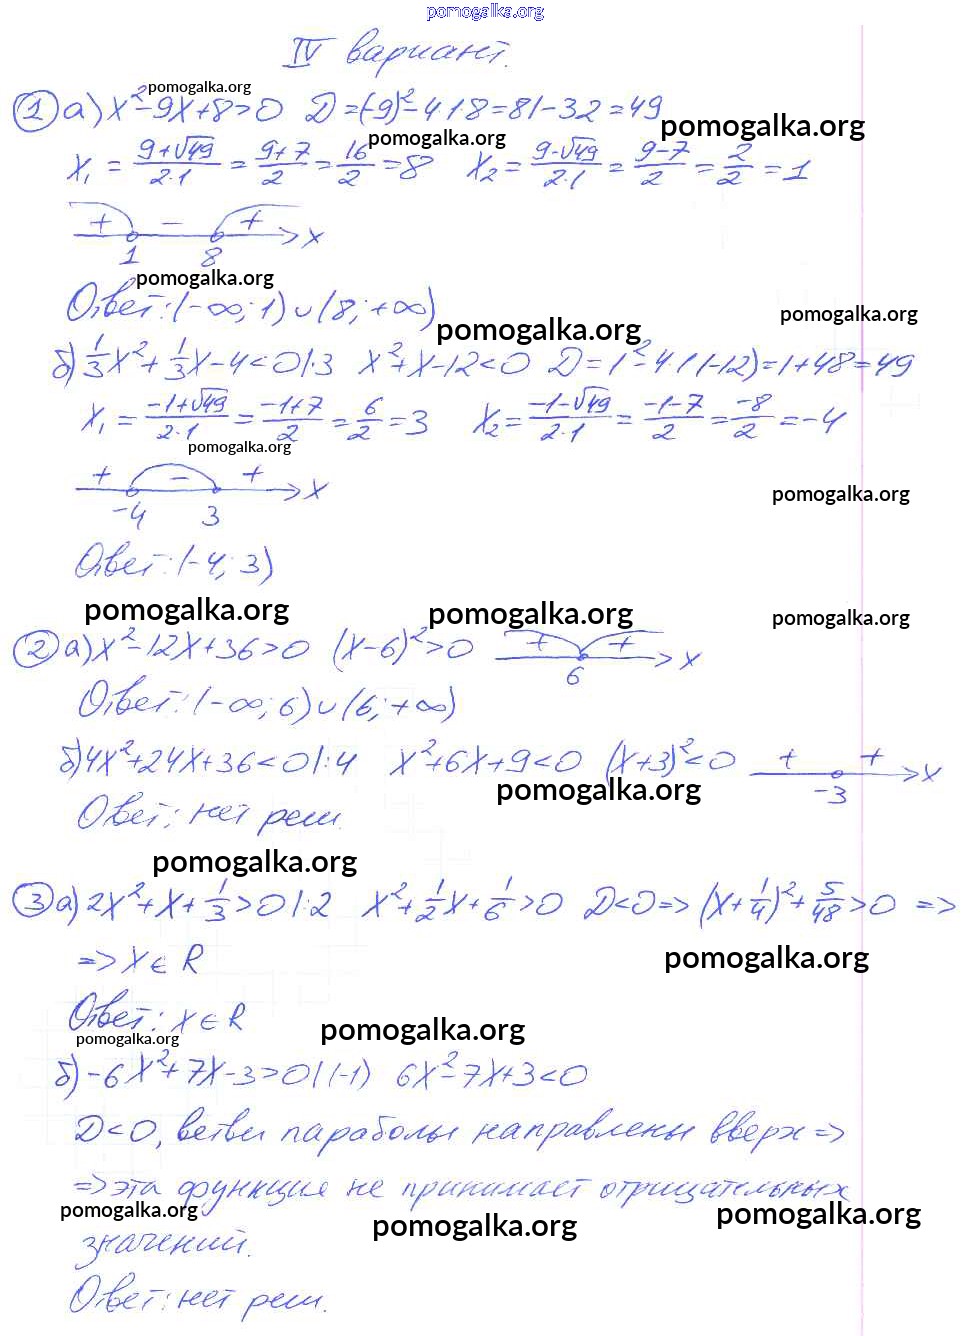 pomogalka.org
IV вариант.
pomogalka.org
① а) x²-9x+8>0 D=(-9)²-4·1·8=81-32=49
pomogalka.org pomogalka.org
x₁ = (9+√49)/(2·1) = (9+7)/2 = 16/2 = 8 x₂ = (9-√49)/(2·1) = (9-7)/2 = 2/2 = 1
+ - + x
1 8
pomogalka.org
Ответ: (-∞; 1) ∪ (8; +∞)
pomogalka.org pomogalka.org
б) 1/3x² + 1/3x - 4 < 0 |·3 x²+x-12<0 D=1²-4·1·(-12)=1+48=49
x₁ = (-1+√49)/(2·1) = (-1+7)/2 = 6/2 = 3 x₂ = (-1-√49)/(2·1) = (-1-7)/2 = -8/2 = -4
pomogalka.org
+ - + x
-4 3
pomogalka.org
Ответ: (-4; 3)
pomogalka.org pomogalka.org pomogalka.org
② а) x²-12x+36>0 (x-6)²>0 + + x
6
Ответ: (-∞; 6) ∪ (6; +∞)
б) 4x²+24x+36<0 |:4 x²+6x+9<0 (x+3)²<0 + + x
-3
pomogalka.org
Ответ: нет реш.
pomogalka.org
③ а) 2x²+x+1/3>0 |:2 x²+1/2x+1/6>0 D<0 => (x+1/4)²+5/48>0 =>
=> x ∈ R
pomogalka.org
Ответ: x ∈ R
pomogalka.org pomogalka.org
б) -6x²+7x-3>0 |·(-1) 6x²-7x+3<0
D<0, ветви параболы направлены вверх =>
=> эта функция не принимает отрицательных
pomogalka.org pomogalka.org pomogalka.org
значений.
Ответ: нет реш.